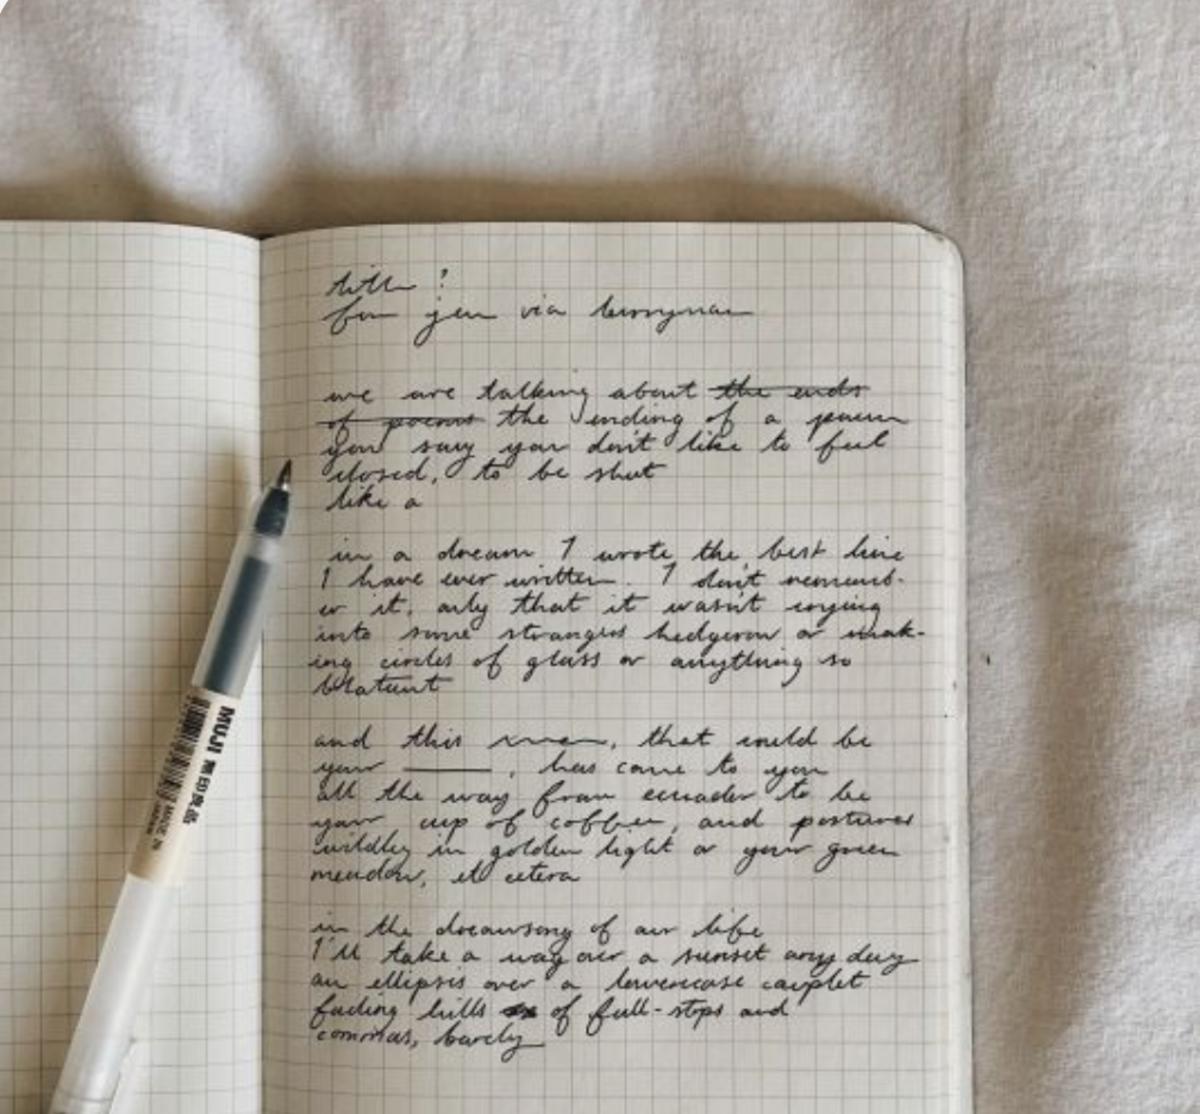 title?
for jen via berryman
we are talking about the ends
of poems the ending of a poem
you say you don't like to feel
closed, to be shut
like a
in a dream I wrote the best line
I have ever written. I don't rememb-
er it, only that it wasn't
into some strangers hedgerow or mak-
ing circles of glass or anything so
blatant
and this, that could be
your ______, has come to you
all the way from ecuador to be
your cup of coffee, and postures
wildly in golden light or your green
meadow, et cetera
in the dreamsong of our life
I'll take a over a sunset any day
an ellipsis over a lowercase couplet
fading hills of full-stops and
commas, barely
MUJI 無印良品
MADE IN JAPAN